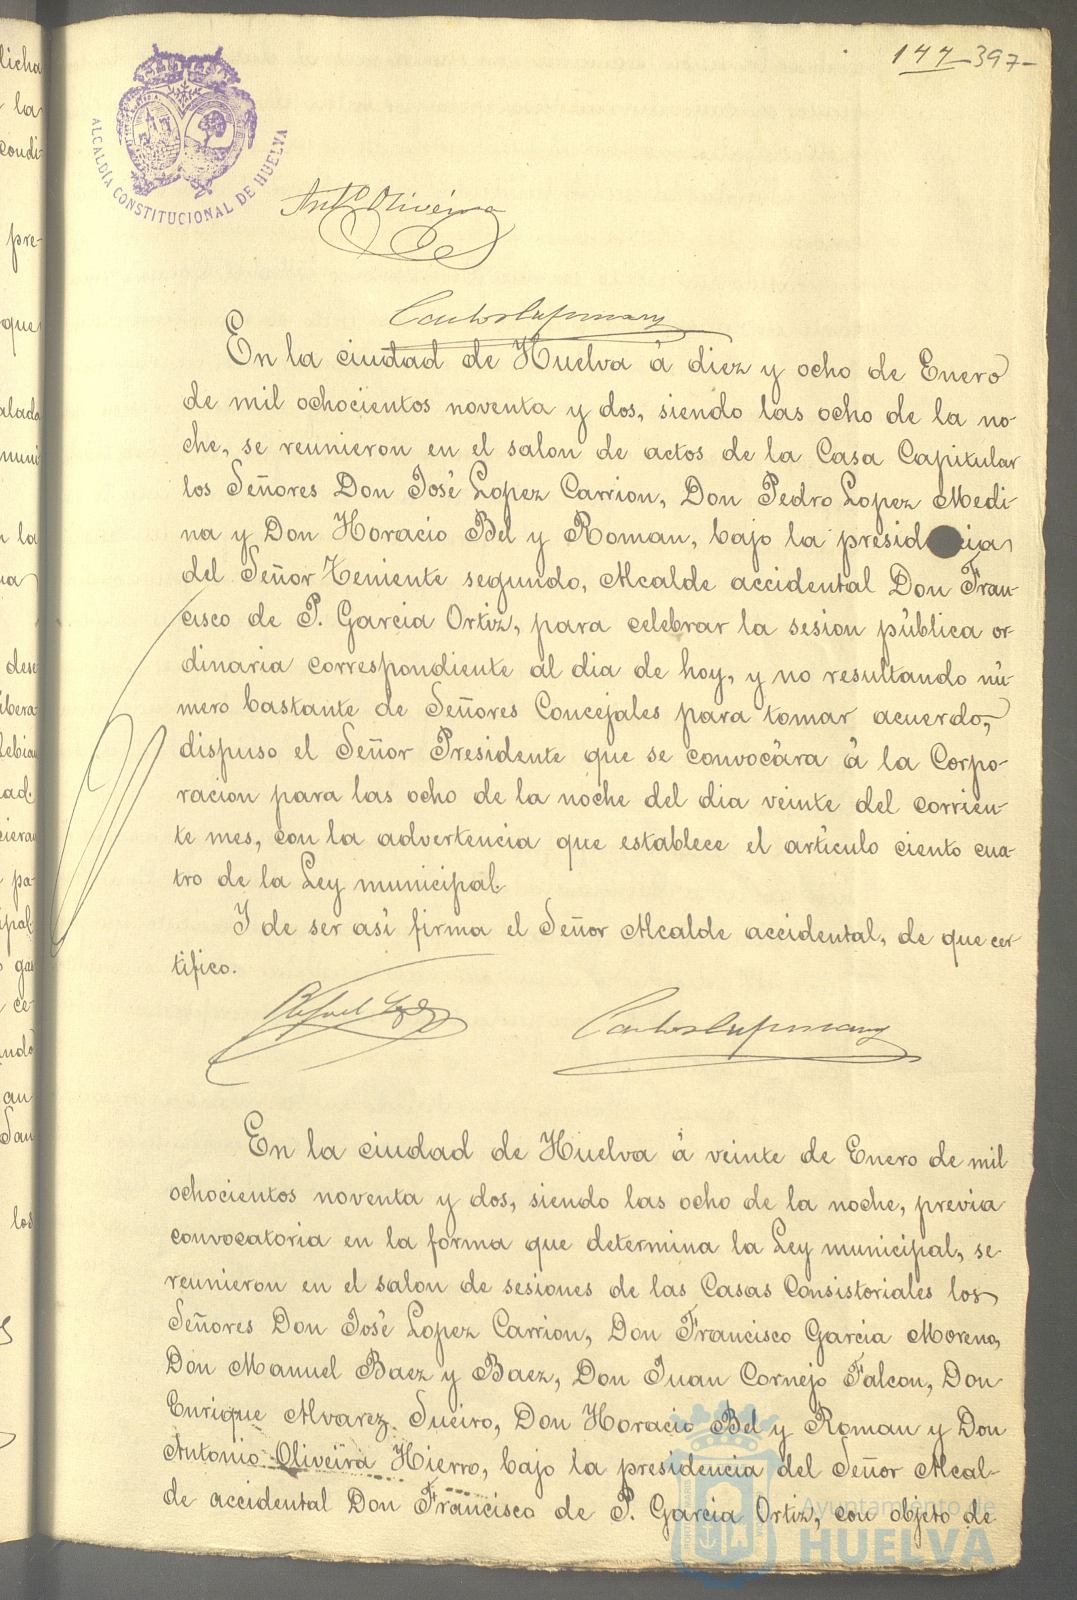 147 397-
ALCALDÍA CONSTITUCIONAL DE HUELVA
Antº Oliveira
En la ciudad de Huelva á diez y ocho de Enero
de mil ochocientos noventa y dos, siendo las ocho de la no-
che, se reunieron en el salon de actos de la Casa Capitular
los Señores Don José Lopez Carrion, Don Pedro Lopez Medi-
na y Don Horacio Bel y Roman, bajo la presidencia
del Señor Teniente segundo, Alcalde accidental Don Fran-
cisco de P. Garcia Ortiz, para celebrar la sesion pública or-
dinaria correspondiente al dia de hoy, y no resultando nú-
mero bastante de Señores Concejales para tomar acuerdo,
dispuso el Señor Presidente que se convocára á la Corpo-
racion para las ocho de la noche del dia veinte del corrien-
te mes, con la advertencia que establece el artículo ciento cua-
tro de la Ley municipal.
Y de ser así firma el Señor Alcalde accidental, de que cer-
tifico.
En la ciudad de Huelva á veinte de Enero de mil
ochocientos noventa y dos, siendo las ocho de la noche, previa
convocatoria en la forma que determina la Ley municipal, se
reunieron en el salon de sesiones de las Casas Consistoriales los
Señores Don José Lopez Carrion, Don Francisco Garcia Moreno,
Don Manuel Baez y Baez, Don Juan Cornejo Falcon, Don
Enrique Alvarez Sueiro, Don Horacio Bel y Roman y Don
Antonio Oliveira Hierro, bajo la presidencia del Señor Alcal-
de accidental Don Francisco de P. Garcia Ortiz, con objeto de
Ayuntamiento de
HUELVA